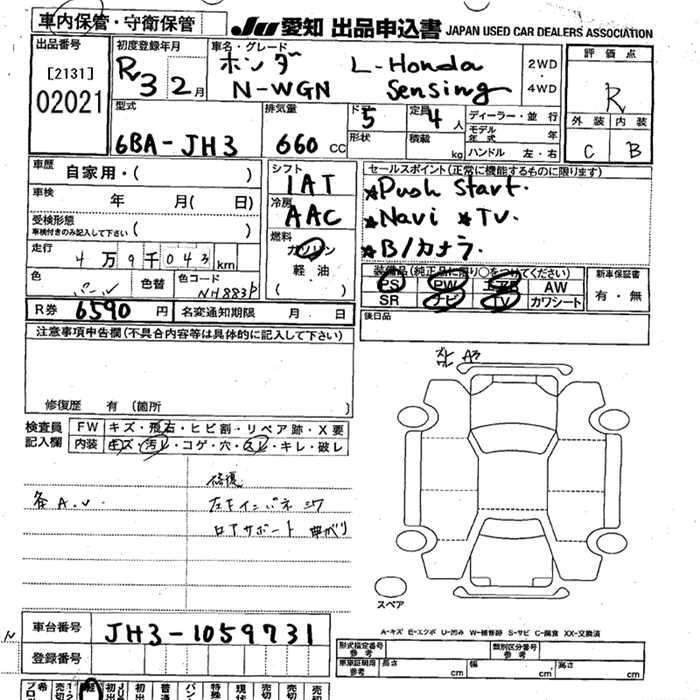 車内保管・守衛保管
JU 愛知 出品申込書 JAPAN USED CAR DEALERS ASSOCIATION
出品番号
[2131]
02021
初度登録年月
R3 2月
車名・グレード
ホンダ L-Honda
N-WGN Sensing
2WD
・
4WD
評価点
R
外装 内装
C B
型式
6BA-JH3
排気量
660 cc
ドア
5
形状
定員
4人
積載
kg
ディーラー・並行
モデル年式 年
ハンドル 左・右
車歴 自家用・( )
車検 年 月( 日)
受検形態
車検付きのみ記入して下さい ( )
走行
4万9千043km
色
パール
色替
色コード
NH883P
シフト
IAT
冷房
AAC
燃料
ガソリン
軽油
( )
セールスポイント(正常に機能するものに限ります)
★Push Start.
★Navi ★TV.
★B/カメラ.
装備品(純正品に限り○をつけてください)
PS PW エアB AW
SR ナビ TV カワシート
新車保証書
有・無
R券 6590円
名変通知期限 月 日
後日品
注意事項申告欄(不具合内容等は具体的に記入して下さい)
修復歴 有 (箇所 )
検査員
記入欄
FW キズ・飛石・ヒビ割・リペア跡・X要
内装 キズ・汚レ・コゲ・穴・スレ・キレ・破レ
修復
各A.U.
左FインパネSワ
ロアサポート 曲がり
A3
スペア
A-キズ E-エクボ U-凹み W-補修跡 S-サビ C-腐食 XX-交換済
車台番号 JH3-1059731
登録番号
形式指定番号
参考
類別区分番号
参考
車庫証明用
参考
長さ cm 幅 cm 高さ cm